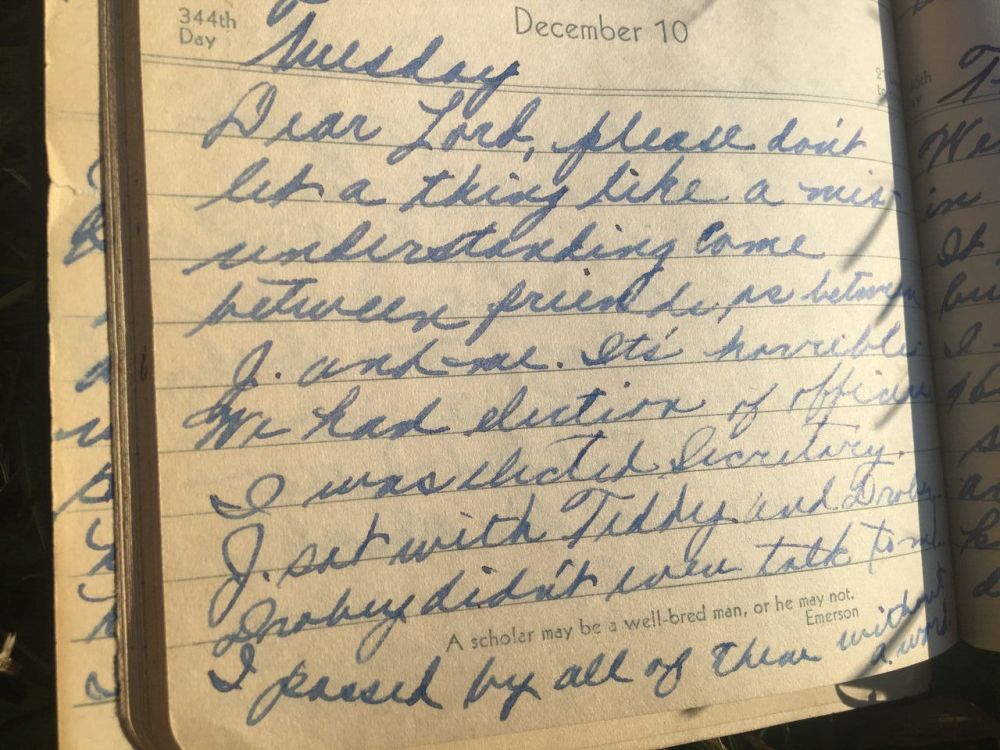 344th
Day
December 10
Tuesday
Dear Lord, please don't
let a thing like a mis-
understanding come
between friends, as between
J. and me. It's horrible
We had election of officers
I was elected Secretary.
J. sat with Teddy and Droby
Drobey didn't even talk to me
A scholar may be a well-bred man, or he may not.
Emerson
I passed by all of them without
a word
We
in
It
I